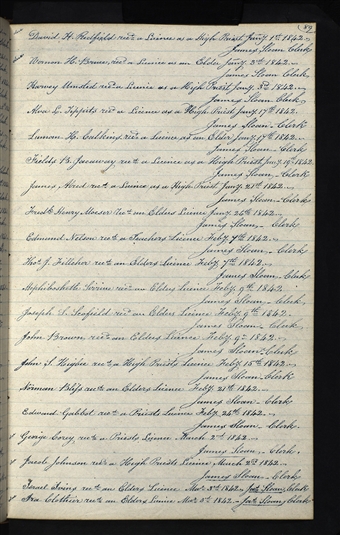 89
David H. Redfield recd a Licence as a High Priest Jany. 1st 1842.—
James Sloan Clerk
Vernon H. Bruce, recd a Licence as an Elder Jany. 3d 1842.—
James Sloan Clerk
Harvey Umsted recd a Licence as a High Priest Jany. 5th 1842.—
James Sloan, Clerk
Alva L. Tippits recd a Licence as a High Priest Jany. 17th 1842.—
James Sloan — Clerk
Luman H. Calkins, recd a Licence as an Elder Jany. 17th 1842.—
James Sloan — Clerk
Fields B. Jacaway recd a Licence as a High Priest Jany. 19th 1842
James Sloan, — Clerk
James Alred recd a Licence as a High Priest Jany. 21st 1842—
James Sloan, — Clerk
Fredk. Henry Moeser recd an Elders Licence Jany. 26th 1842—
James Sloan, — Clerk
Edmund Nelson recd a Teachers Licence Feby. 7th 1842.—
James Sloan — Clerk
Thos. J. Filcher recd an Elders Licence Feby. 7th 1842.—
James Sloan, Clerk
Mephibosheth Sirrine recd an Elders Licence Feby. 9th 1842
James Sloan — Clerk
Joseph S. Scofield recd an Elders Licence Feby. 9th 1842.
James Sloan — Clerk
John Brown recd an Elders Licence Feby. 9th 1842.—
James Sloan — Clerk
John S. Higbee recd a High Priests Licence Feby. 15th 1842.—
James Sloan — Clerk
Norman Bliss recd an Elders Licence Feby. 21st 1842—
James Sloan — Clerk
Edward Gabbot recd a Priests Licence Feby. 26th 1842.—
James Sloan — Clerk.
George Corey, recd a Priests Licence March 2nd 1842.—
James Sloan, — Clerk.
Jacob Johnson recd a High Priests Licence March 2nd 1842.—
James Sloan — Clerk
Israel Ivins recd an Elders Licence Mar. 5th 1842.— Jas. Sloan, Clerk
Ira Clothier recd an Elders Licence Mar. 5th 1842.— Jas. Sloan, Clerk